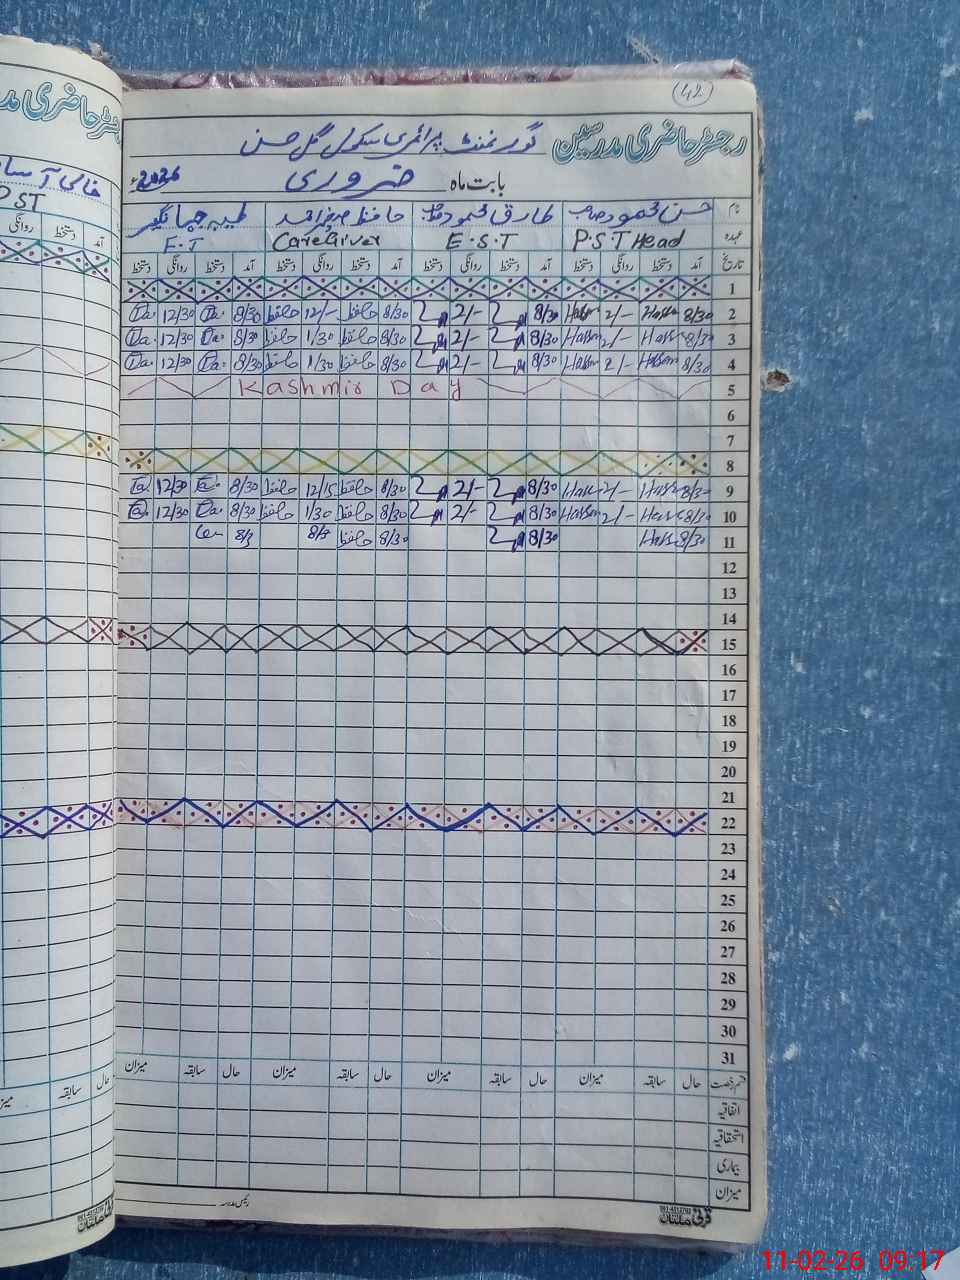 42
رجسٹر حاضری مدرسین گورنمنٹ پرائمری سکول گل حسن
بابت ماہ فروری 2026ء
نام حسن محمود صاحب طارق محمود صاحب حافظ طیبہ جہانگیر
عہدہ P.S.T Head E.S.T CareGiver E.T
تاریخ آمد دستخط روانگی دستخط آمد دستخط روانگی دستخط آمد دستخط روانگی دستخط آمد دستخط روانگی دستخط
1
2 8/30 Hassan 2/- Hassan 8/30 2/- 8/30 حافظ 12/- حافظ 8/30 Ta. 12/30 Ta.
3 8/30 Hassan 2/- Hassan 8/30 2/- 8/30 حافظ 1/30 حافظ 8/30 Ta. 12/30 Ta.
4 8/30 Hassan 2/- Hassan 8/30 2/- 8/30 حافظ 1/30 حافظ 8/30 Ta. 12/30 Ta.
5 Kashmir Day
6
7
8
9 8/30 Hassan 2/- Hassan 8/30 2/- 8/30 حافظ 12/15 حافظ 8/30 Ta. 12/30 Ta.
10 8/30 Hassan 2/- Hassan 8/30 2/- 8/30 حافظ 1/30 حافظ 8/30 Ta. 12/30 Ta.
11 8/30 Hassan 8/30 8/30 حافظ 8/3 8/3
12
13
14
15
16
17
18
19
20
21
22
23
24
25
26
27
28
29
30
31
قسم رخصت حال سابقہ میزان حال سابقہ میزان حال سابقہ میزان حال سابقہ میزان
اتفاقیہ
استحقاقیہ
بیماری
میزان
رئیس مدرسہ
قریشی ملتان
رجسٹر حاضری
خالی آسا
PST
آمد دستخط روانگی
حال سابقہ
11-02-26 09:17